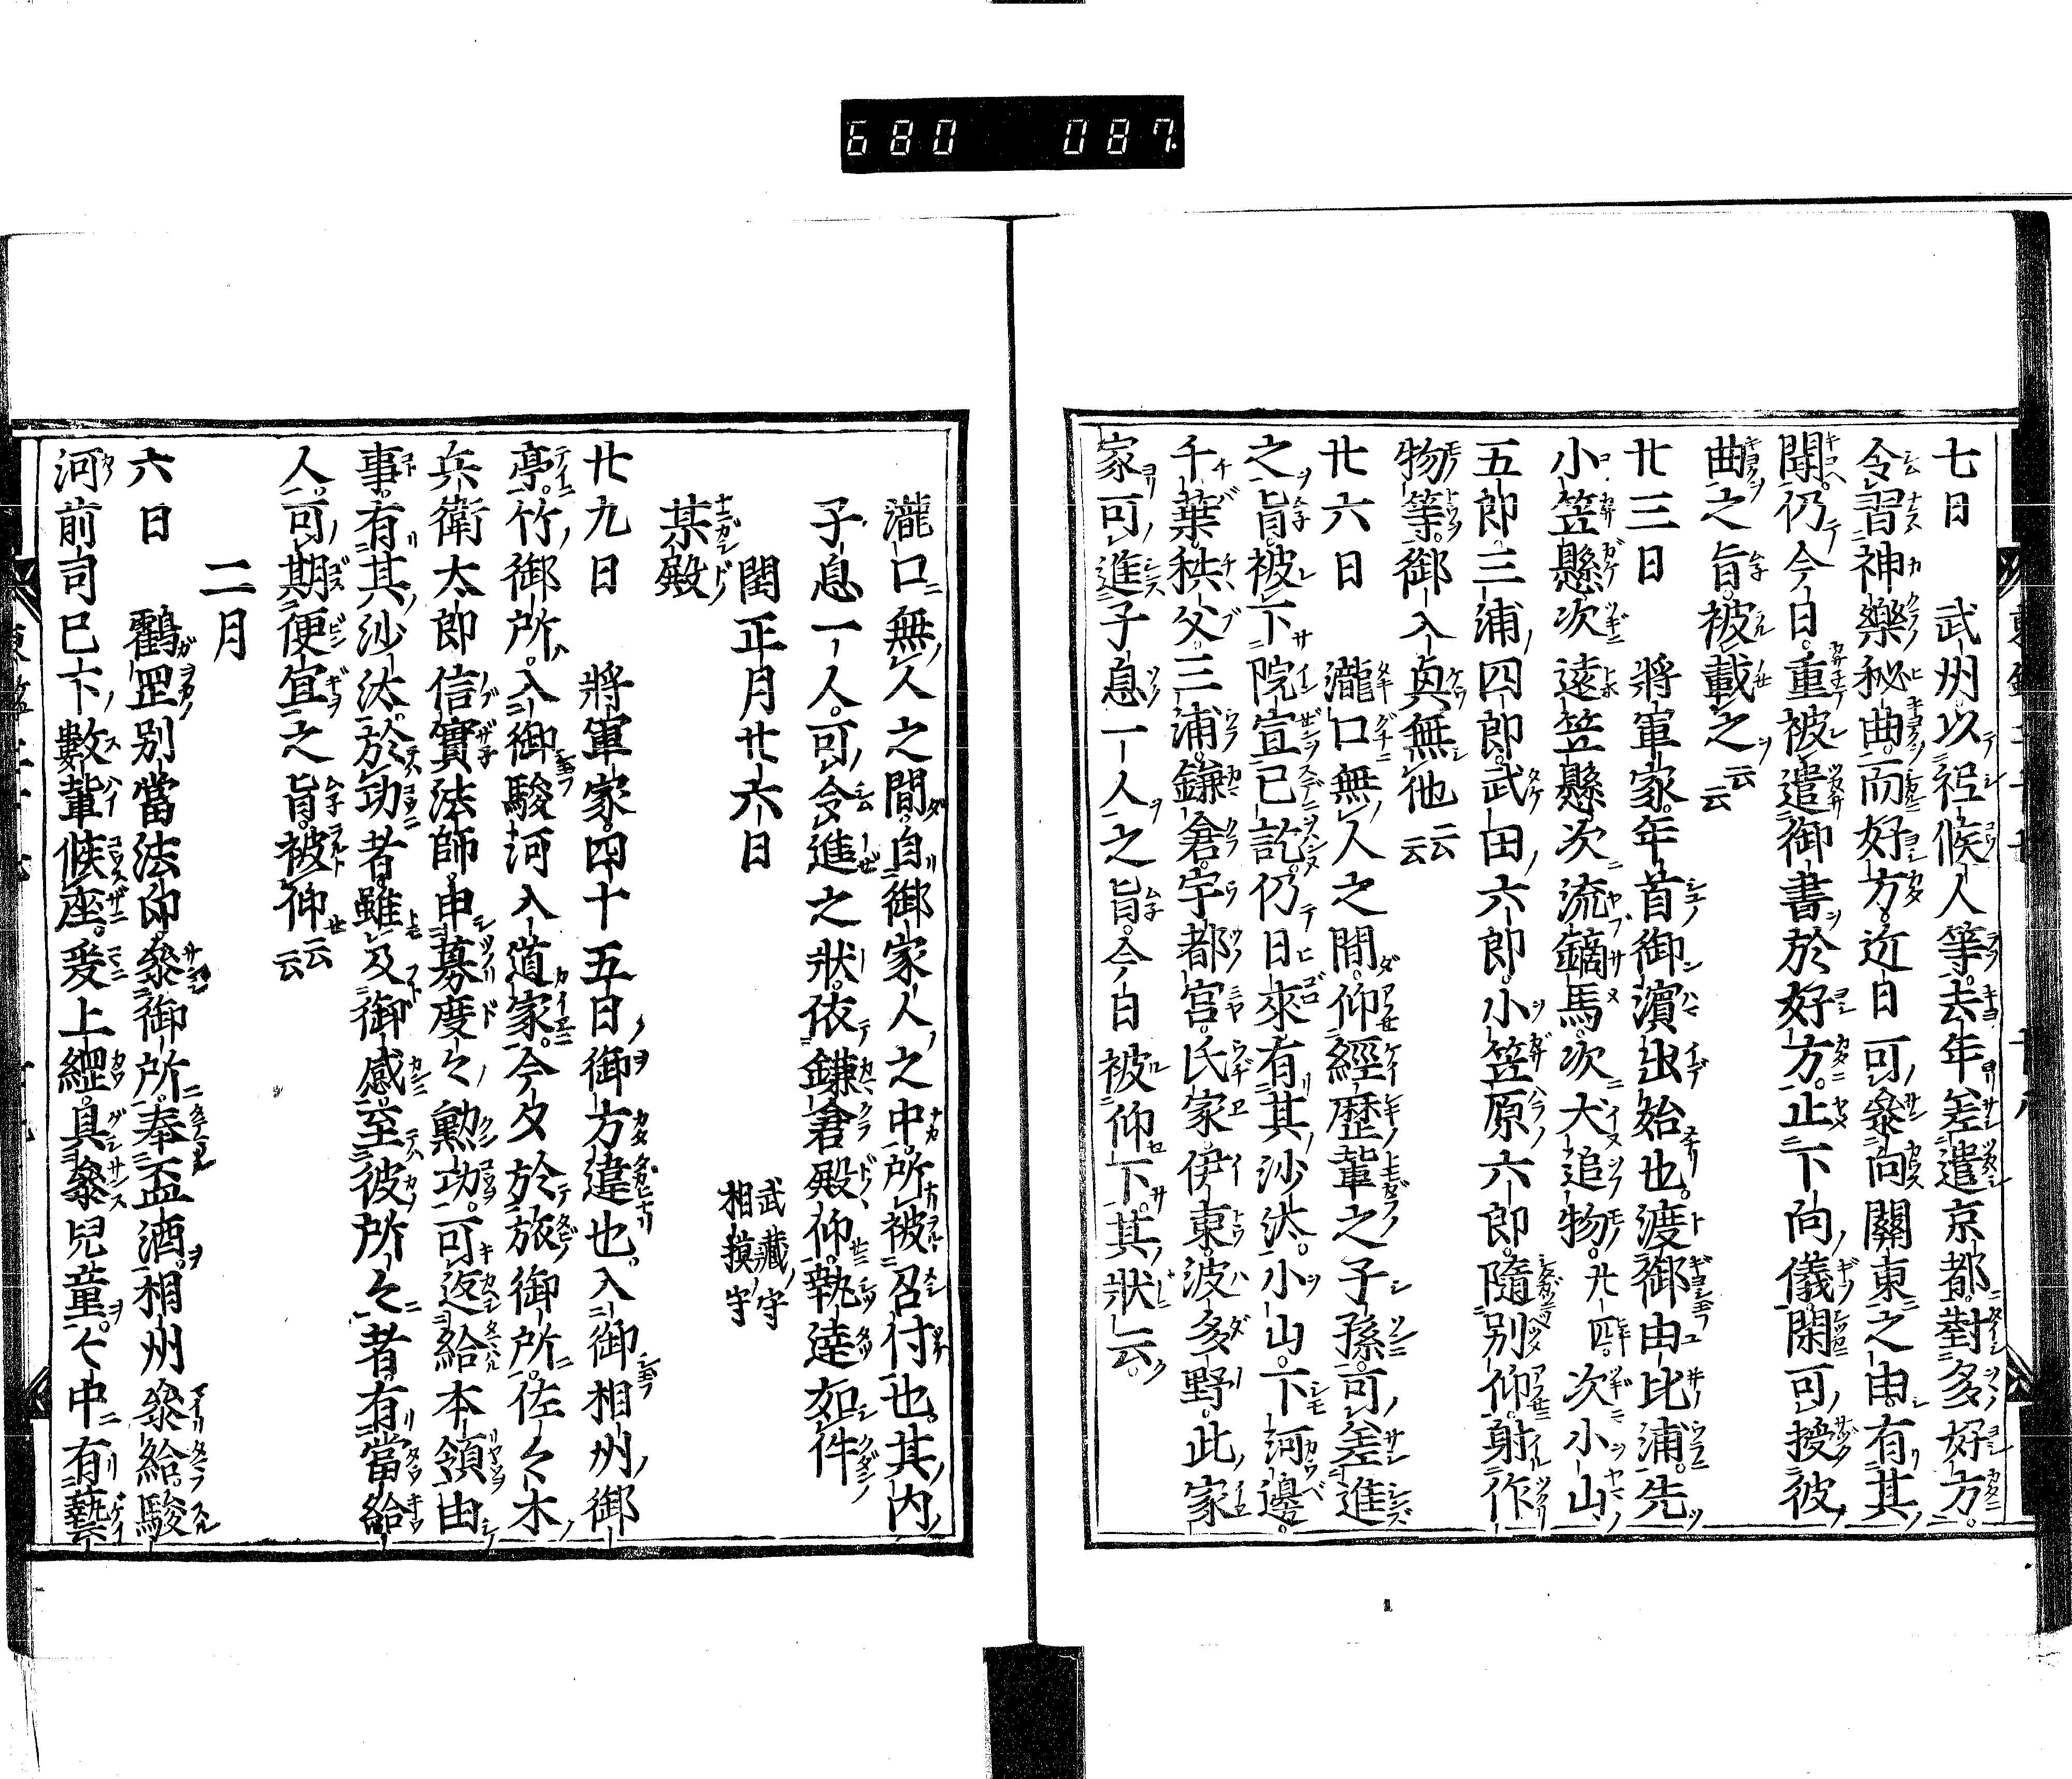 680 087
七日 武州以祗候人等去年差遣京都對多好方
令習神樂秘曲而好方近日可參向關東之由有其
聞仍今日重被遣御書於好方止下向儀閑可授彼
曲之旨被載之云云
廿三日 將軍家年首御濵出始也渡御由比浦先
小笠懸次遠笠懸次流鏑馬次犬追物廿四次小山
五郎三浦四郎武田六郎小笠原六郎隨別仰射作
物等御入興無他云云
廿六日 瀧口無人之間仰經歷輩之子孫可差進
之旨被下院宣已訖仍日來有其沙汰小山下河邊
千葉秩父三浦鎌倉宇都宮氏家伊東波多野此家
家可進子息一人之旨今日被仰下其狀云
瀧口無人之間自御家人之中所被召付也其内
子息一人可令進之狀依鎌倉殿仰執達如件
閏正月廿六日 武藏守
相摸守
某殿
廿九日 將軍家四十五日御方違也入御相州御
亭竹御所入御駿河入道家今夕於旅御所佐々木
兵衛太郎信實法師申募度々勲功可返給本領由
事有其沙汰於功者雖及御感至彼所々者有當給
人可期便宜之旨被仰云云
二月
六日 鸖罡別當法印參御所奉盃酒相州參給駿
河前司已下數輩候座爰上綱具參兒童々中有藝